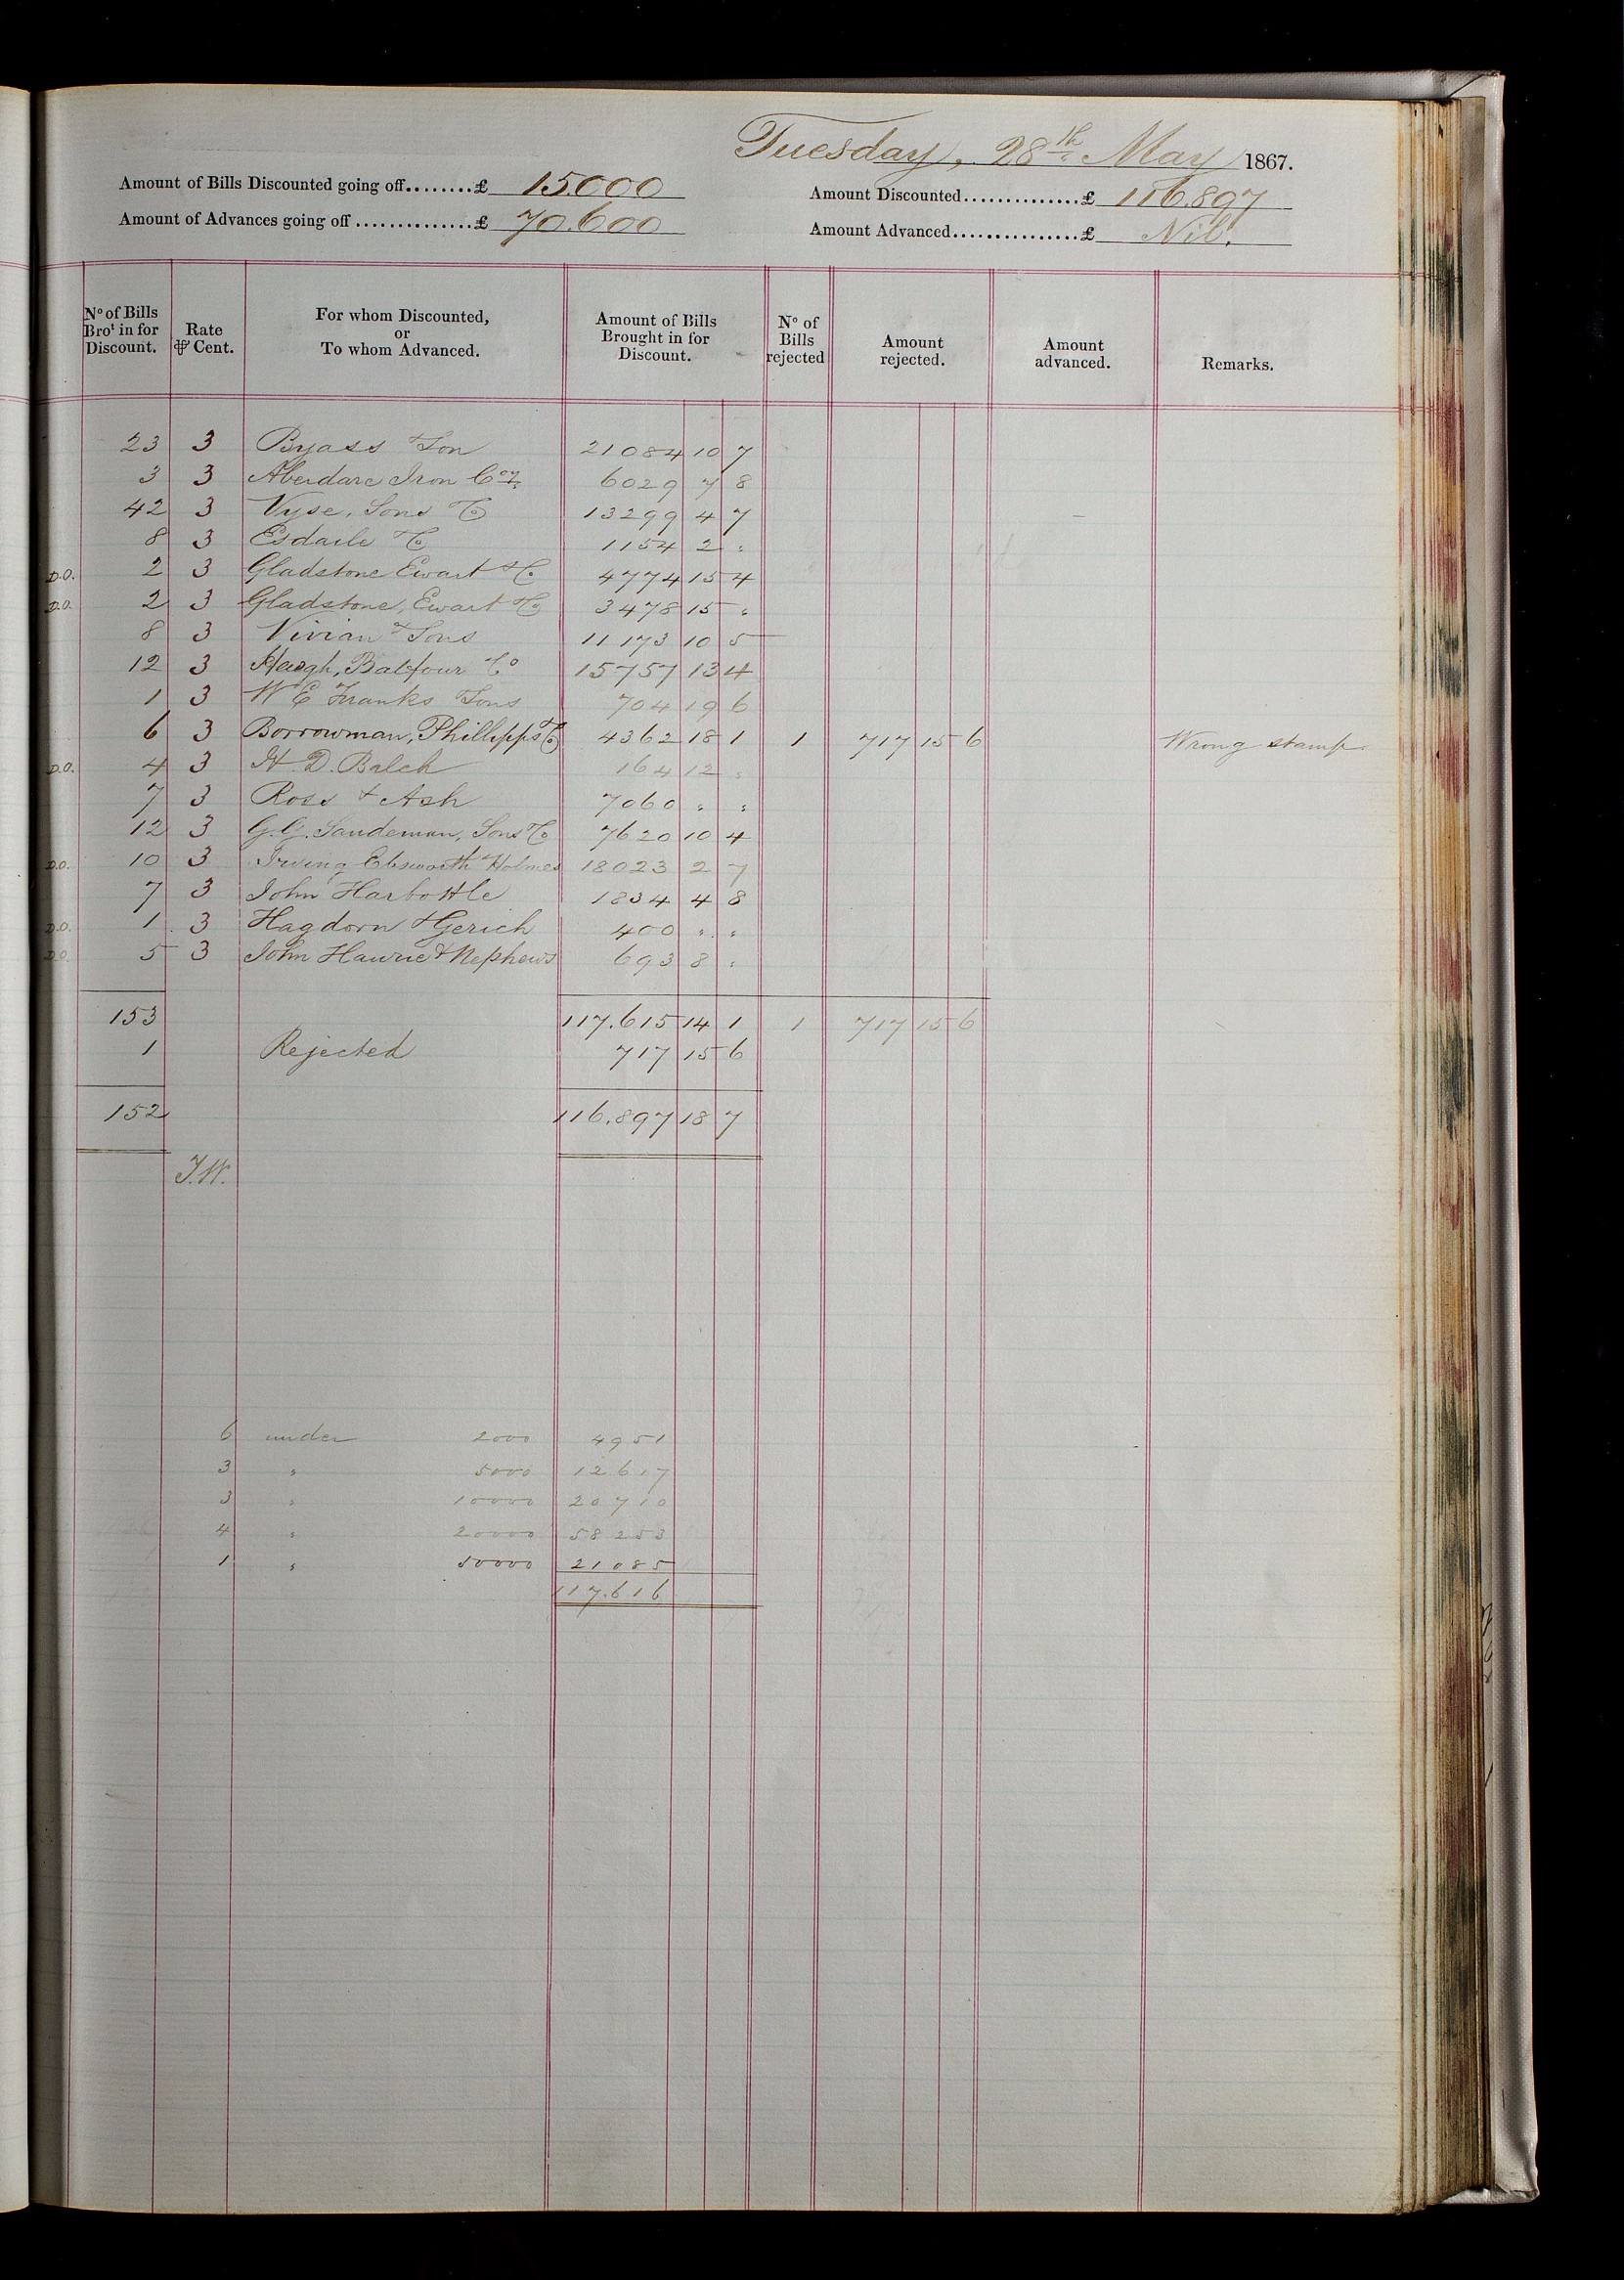 Tuesday, 28th May 1867.
Amount of Bills Discounted going off........£ 15.000
Amount Discounted..............£ 116.897
Amount of Advances going off ..............£ 70.600
Amount Advanced...............£ Nil.
No of Bills Brot in for Discount. Rate ⅌ Cent. For whom Discounted, or To whom Advanced. Amount of Bills Brought in for Discount. No of Bills rejected Amount rejected. Amount advanced. Remarks.
23 3 Byass & Son 21084 10 7
3 3 Aberdare Iron Coy. 6029 7 8
42 3 Vyse, Sons & Co 13299 4 7
8 3 Esdaile & Co 1154 2 "
D.O. 2 3 Gladstone Ewart & Co 4774 15 4
D.O. 2 3 Gladstone, Ewart & Co 3478 15 "
8 3 Vivian & Sons 11173 10 5
12 3 Haegh, Balfour & Co 15757 13 4
1 3 W E Franks & Sons 704 19 6
6 3 Borrowman, Phillipps & Co 4362 18 1 1 717 15 6 Wrong stamp.
D.O. 4 3 H. D. Balch 164 12 "
7 3 Ross & Ash 7060 " "
12 3 G.G. Sandeman, Sons & Co 7620 10 4
D.O. 10 3 Irving Ebsworth & Holmes 18023 2 7
7 3 John Harbottle 1834 4 8
D.O. 1 3 Hagdorn & Gerich 400 " "
D.O. 5 3 John Hawrie & Nephews 693 8 "
153 117.615 14 1 1 717 15 6
1 Rejected 717 15 6
152 116.897 18 7
J.W.
6 under 2000 4951
3 " 5000 12617
3 " 10000 20710
4 " 20000 58253
1 " 50000 21085
117.616